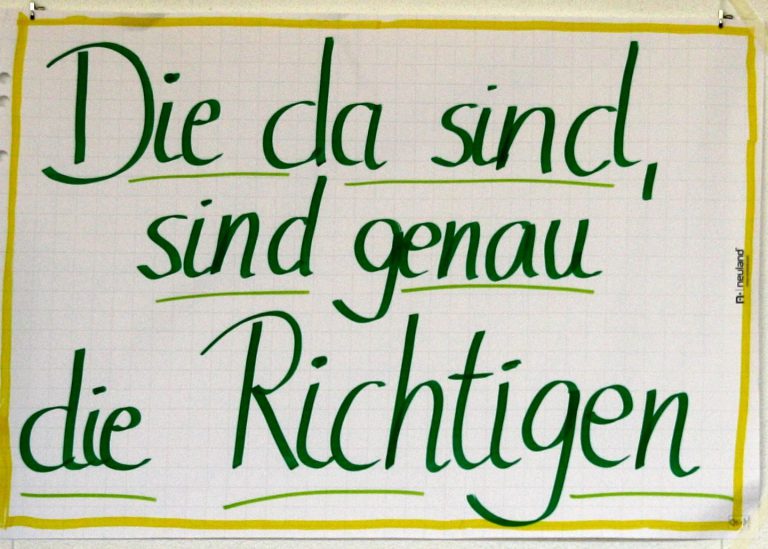 Die da sind,
sind genau
die Richtigen
neuland